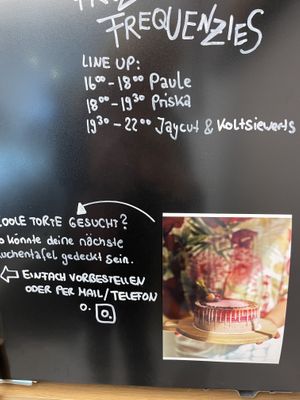 FREQUENZIES
LINE UP:
16⁰⁰ - 18⁰⁰ Paule
18⁰⁰ - 19³⁰ Priska
19³⁰ - 22⁰⁰ Jaycut & Voltsiewerts
OOLE TORTE GESUCHT?
o könnte deine nächste
uchentafel gedeckt sein.
EINFACH VORBESTELLEN
ODER PER MAIL/TELEFON
O.